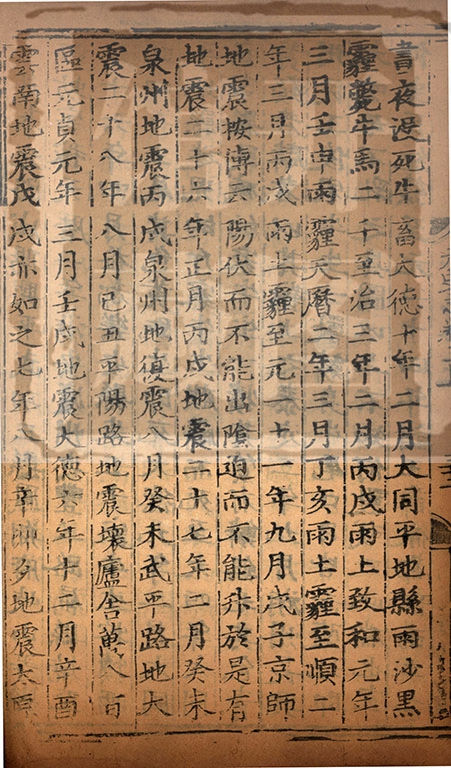 晝夜没死牛畜大德十年二月大同平地縣雨沙黑
霾斃牛馬二千至治三年二月丙戌雨土致和元年
三月壬申雨霾天曆二年三月丁亥雨土霾至順二
年三月丙戌雨土霾至元二十一年九月戊子京師
地震按傳云陽伏而不能出陰迫而不能升於是有
地震二十六年正月丙戌地震二十七年二月癸未
泉州地震丙戌泉州地復震八月癸未武平路地大
震二十八年八月己丑平陽路地震壞廬舍萬八百
區元貞元年三月壬戌地震大德六年十二月辛酉
雲南地震戊戌亦如之七年八月辛卯夕地震太原